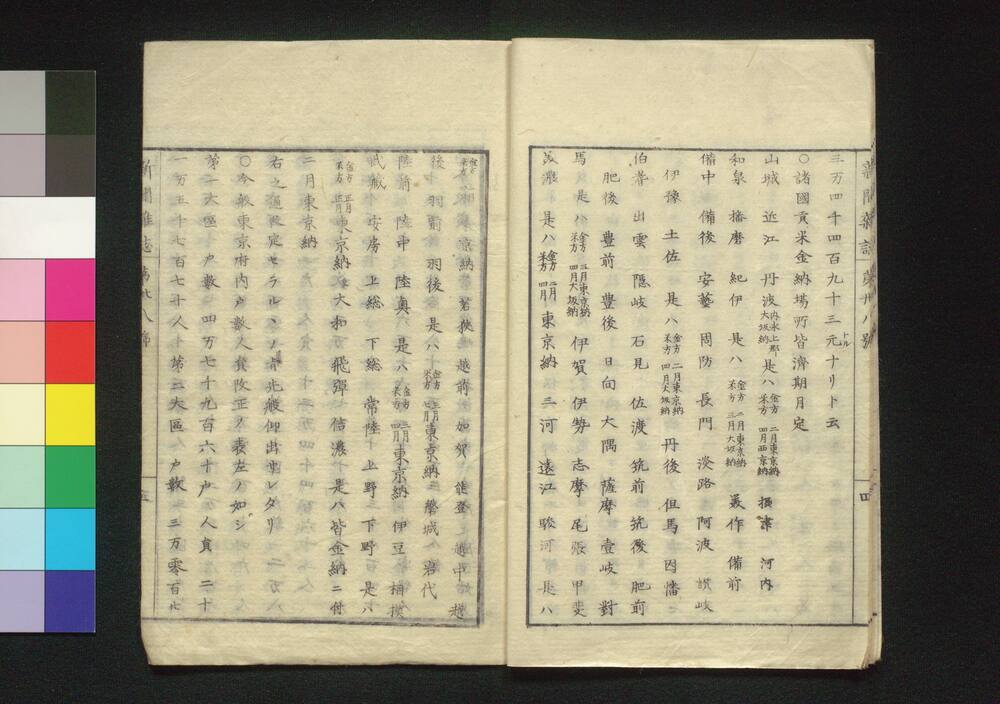 新聞雜誌 第卅八號 四
三万四千四百九十三元ドルナリト云
○諸國貢米金納場所皆濟期月定
山城 近江 丹波内氷上郡大坂納是ハ金方二月東京納米方四月西京納 攝津 河内
和泉 播磨 紀伊 是ハ金方二月東京納米方三月大坂納 美作 備前
備中 備後 安藝 周防 長門 淡路 阿波 讃岐
伊豫 土佐 是ハ金方二月東京納米方四月大坂納 丹後 但馬 因幡
伯耆 出雲 隠岐 石見 佐渡 筑前 筑後 肥前
肥後 豊前 豊後 日向 大隅 薩摩 壹岐 對
馬 是ハ金方三月東京納米方四月大坂納 伊賀 伊勢 志摩 尾張 甲斐
美濃 是ハ金方二月米方四月東京納 三河 遠江 駿河 是ハ
金方米方東京納 若狹 越前 加賀 能登 越中 越
後 羽前 羽後 是ハ金方米方東京納 磐城 岩代
陸前 陸中 陸奥 是ハ金方三月米方四月東京納 伊豆 相摸
武藏 安房 上総 下総 常陸 上野 下野 是ハ
金方正月米方東京納 大和 飛彈 信濃 是ハ皆金納ニ付
二月東京納
右之通改定セラルヽノ旨先般御出サレタリ
○今般東京府内戸数人員改正ノ表左ノ如シ
第一大區 戸数 四万七千九百六十戸 人員 二十
一万五千七百七十人 第二大區 戸数 三万零百七
新聞雜誌 第卅八號 五